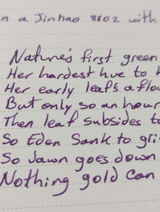 n a Jinhao 8802 with
Nature's first green
Her hardest hue to h
Her early leaf's a flow
But only so an hour
Then leaf subsides to
So Eden Sank to gri
So dawn goes down
Nothing gold can